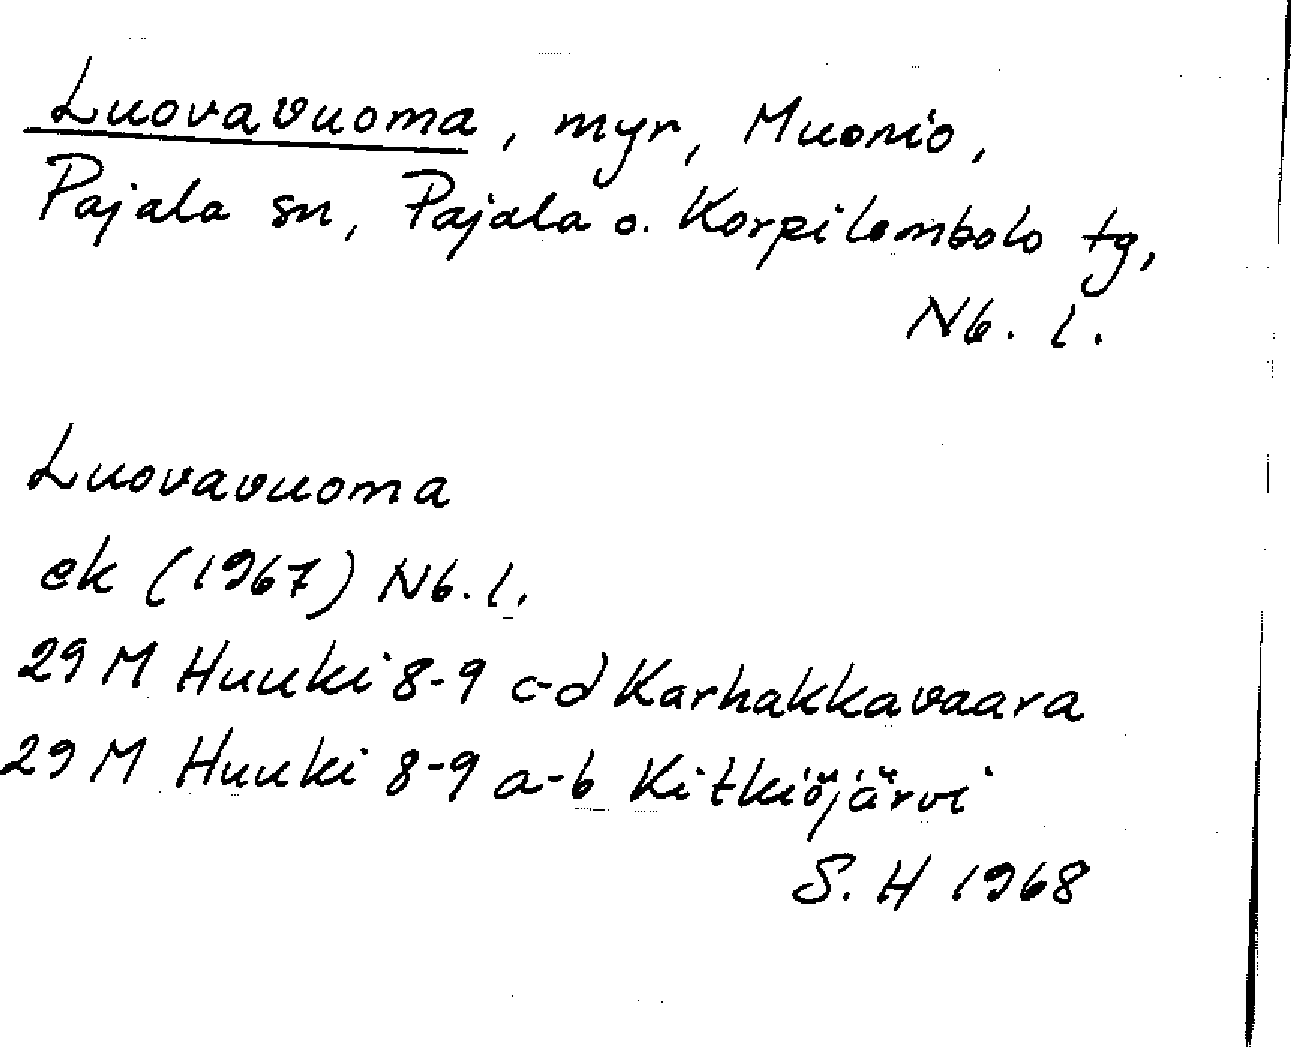 Luovavuoma, myr, Muonio,
Pajala sn, Pajala o. Korpilombolo tg,
Nb. l.
Luovavuoma
ek (1967) Nb. l.
29 M Huuki 8-9 c-d Karhakkavaara
29 M Huuki 8-9 a-b Kitkiöjärvi
S. H 1968